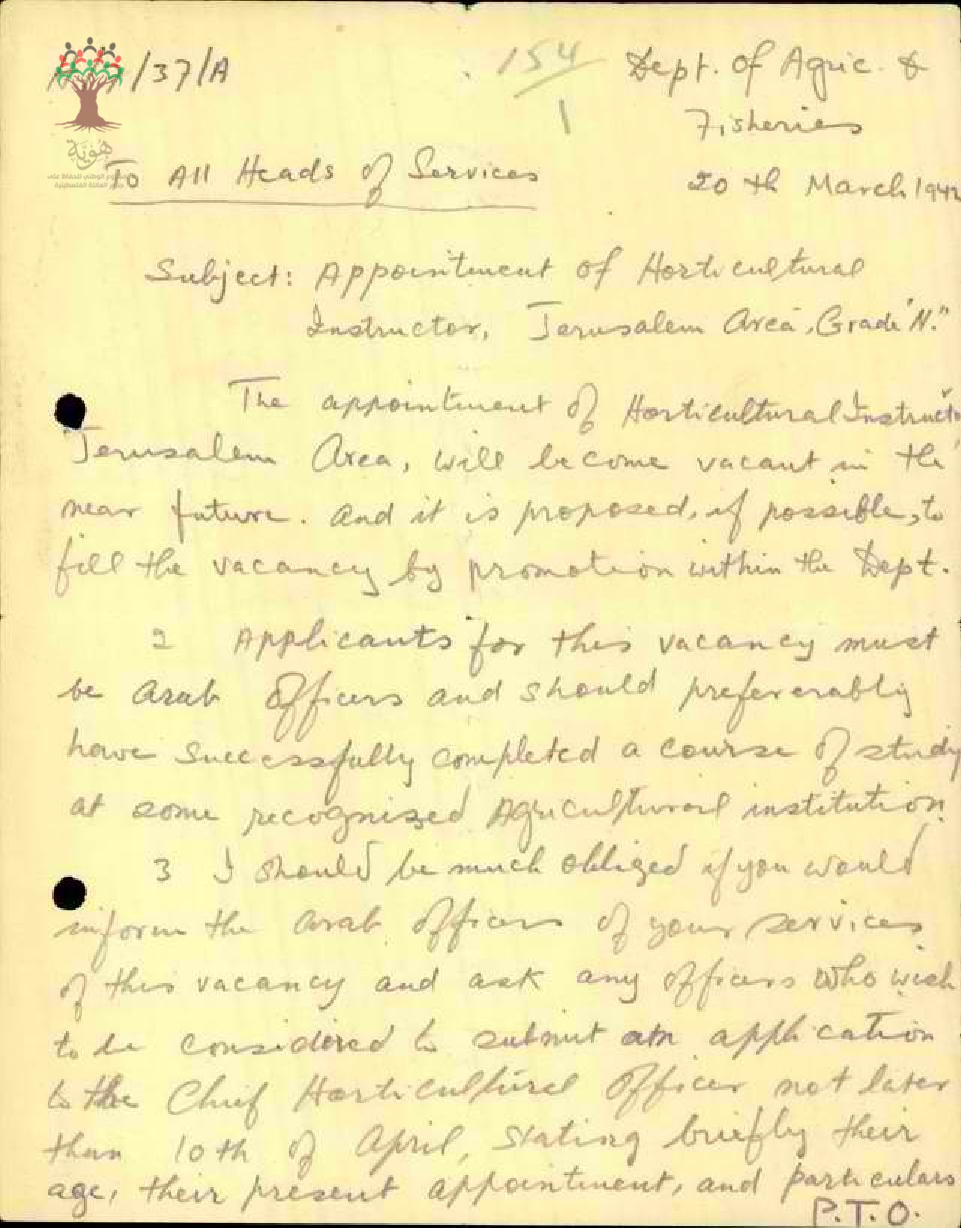 /37/A
154/1
Dept. of Agric. &
Fisheries
هوية
To All Heads of Services
20th March 194
Subject: Appointment of Horticultural
Instructor, Jerusalem Area, Grade "N."
The appointment of Horticultural Instructo
Jerusalem Area, will become vacant in the
near future. And it is proposed, if possible, to
fill the vacancy by promotion within the Dept.
2 Applicants for this vacancy must
be Arab Officers and should prefererably
have successfully completed a course of study
at some recognised Agricultural institution.
3 I should be much obliged if you would
inform the Arab officers of your services
of this vacancy and ask any officers who wish
to be considered to submit an application
to the Chief Horticultural Officer not later
than 10th of April, stating briefly their
age, their present appointment, and particulars
P.T.O.